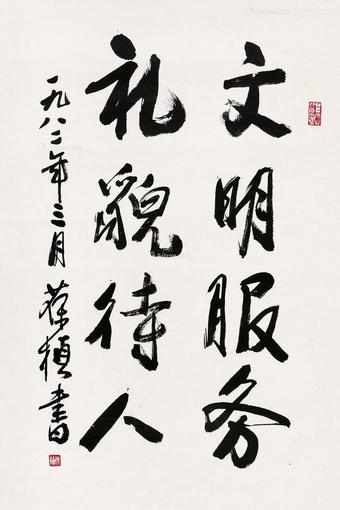 文明服务
礼貌待人
一九八二年三月 植书